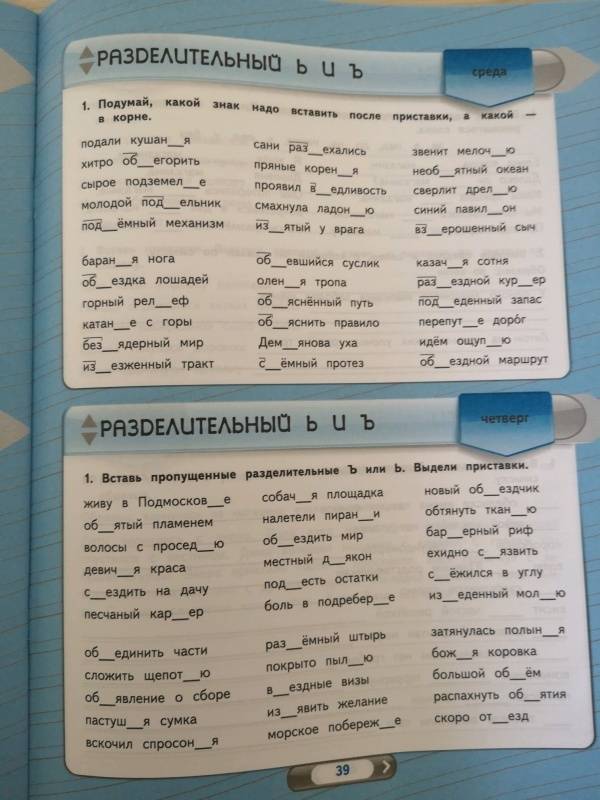 РАЗДЕЛИТЕЛЬНЫЙ Ь И Ъ
среда
1. Подумай, какой знак надо вставить после приставки, а какой —
в корне.
подали кушан__я
хитро об__егорить
сырое подземел__е
молодой под__ельник
под__ёмный механизм
сани раз__ехались
пряные корен__я
проявил в__едливость
смахнула ладон__ю
из__ятый у врага
звенит мелоч__ю
необ__ятный океан
сверлит дрел__ю
синий павил__он
вз__ерошенный сыч
баран__я нога
об__ездка лошадей
горный рел__еф
катан__е с горы
без__ядерный мир
из__езженный тракт
об__евшийся суслик
олен__я тропа
об__яснённый путь
об__яснить правило
Дем__янова уха
с__ёмный протез
казач__я сотня
раз__ездной кур__ер
под__еденный запас
перепут__е доро́г
идём ощуп__ю
об__ездной маршрут
РАЗДЕЛИТЕЛЬНЫЙ Ь И Ъ
четверг
1. Вставь пропущенные разделительные Ъ или Ь. Выдели приставки.
живу в Подмосков__е
об__ятый пламенем
волосы с просед__ю
девич__я краса
с__ездить на дачу
песчаный кар__ер
собач__я площадка
налетели пиран__и
об__ездить мир
местный д__якон
под__есть остатки
боль в подребер__е
новый об__ездчик
обтянуть ткан__ю
бар__ерный риф
ехидно с__язвить
с__ёжился в углу
из__еденный мол__ю
об__единить части
сложить щепот__ю
об__явление о сборе
пастуш__я сумка
вскочил спросон__я
раз__ёмный штырь
покрыто пыл__ю
в__ездные визы
из__явить желание
морское побереж__е
затянулась полын__я
бож__я коровка
большой об__ём
распахнуть об__ятия
скоро от__езд
39